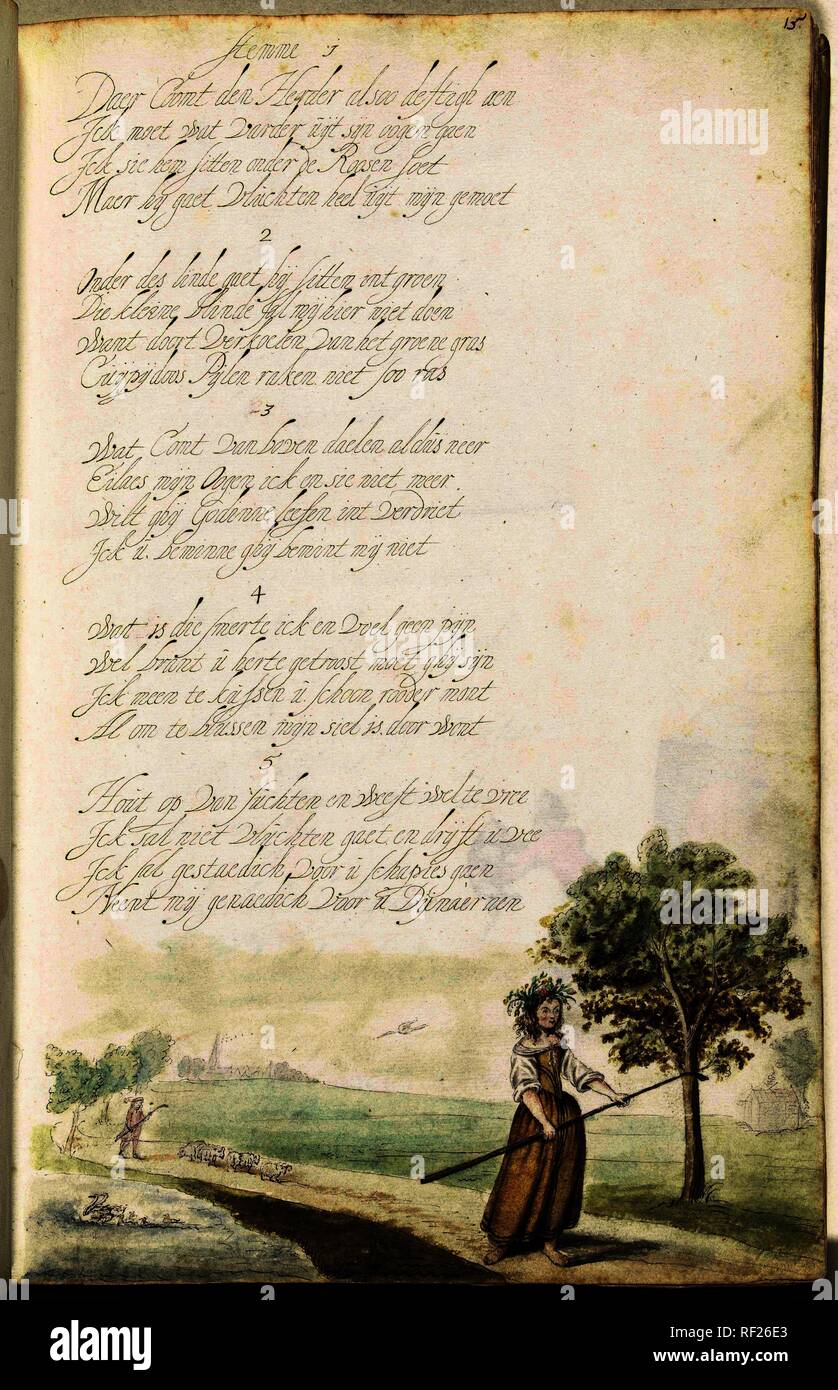 15.
Stemme 1
Daer Coomt den Herder alsoo deftigh aen
Ick moet wat varder uÿt sÿn oogen gaen
Ick sie hem sitten onder de Roosen soet
Maer hÿ gaet vluchten heel uÿt mÿn gemoet
2
Onder des linde gaet hÿ sitten int groen
Die kleine blinde sal mÿ hier niet doen
Want doort verkoelen van het groene gras
Cuÿpÿdoos Pÿlen raken niet soo ras
3
Wat Comt van boven daelen aldus neer
Eilaes mÿn Oogen ick en sie niet meer
Wilt ghÿ Godinne leesen int verdriet
Ick u beminne ghÿ bemint mÿ niet
4
Wat is die smerte ick en voel geen pÿn
Wel brant u herte getroost moet ghÿ sÿn
Ick meen te kussen u schoon rooder mont
Al om te blussen mÿn siel is door wont
5
Hout op van suchten en weest wel te vree
Ick sal niet vluchten gaet en drÿft u vee
Ick sal gestaedich voor u schapies gaen
Neemt mÿ genaedich voor u Dÿnaer aen
alamy
Image ID: RF26E3
www.alamy.com